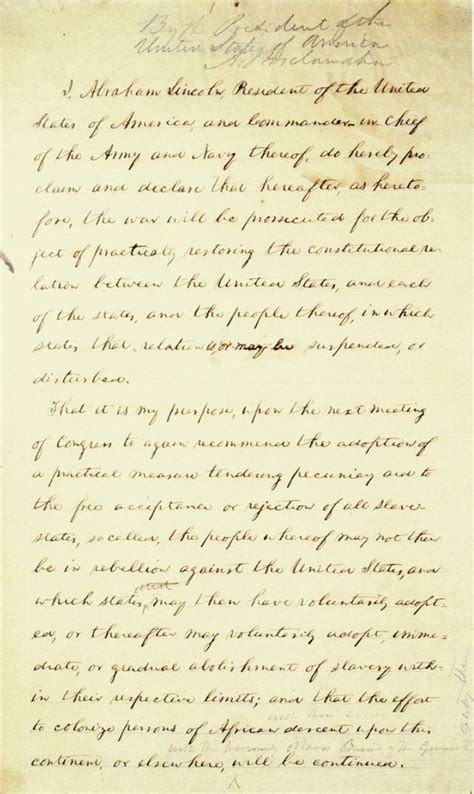 By the President of the
United States of America
A Proclamation
I, Abraham Lincoln, President of the United
States of America, and Commander-in-Chief
of the Army and Navy thereof, do hereby pro-
claim and declare that hereafter, as hereto-
fore, the war will be prosecuted for the ob-
ject of practically restoring the constitutional re-
lation between the United States, and each
of the states, and the people thereof, in which
states that relation is, or may be suspended, or
disturbed.
That it is my purpose, upon the next meeting
of Congress to again recommend the adoption of
a practical measure tendering pecuniary aid to
the free acceptance or rejection of all slave-
states, so called, the people whereof may not then
be in rebellion against the United States, and
which states, and may then have voluntarily adopt-
ed, or thereafter may voluntarily adopt, imme-
diate, or gradual abolishment of slavery with-
in their respective limits; and that the effort
to colonize persons of African descent upon this
with their
continent, or elsewhere, will be continued.